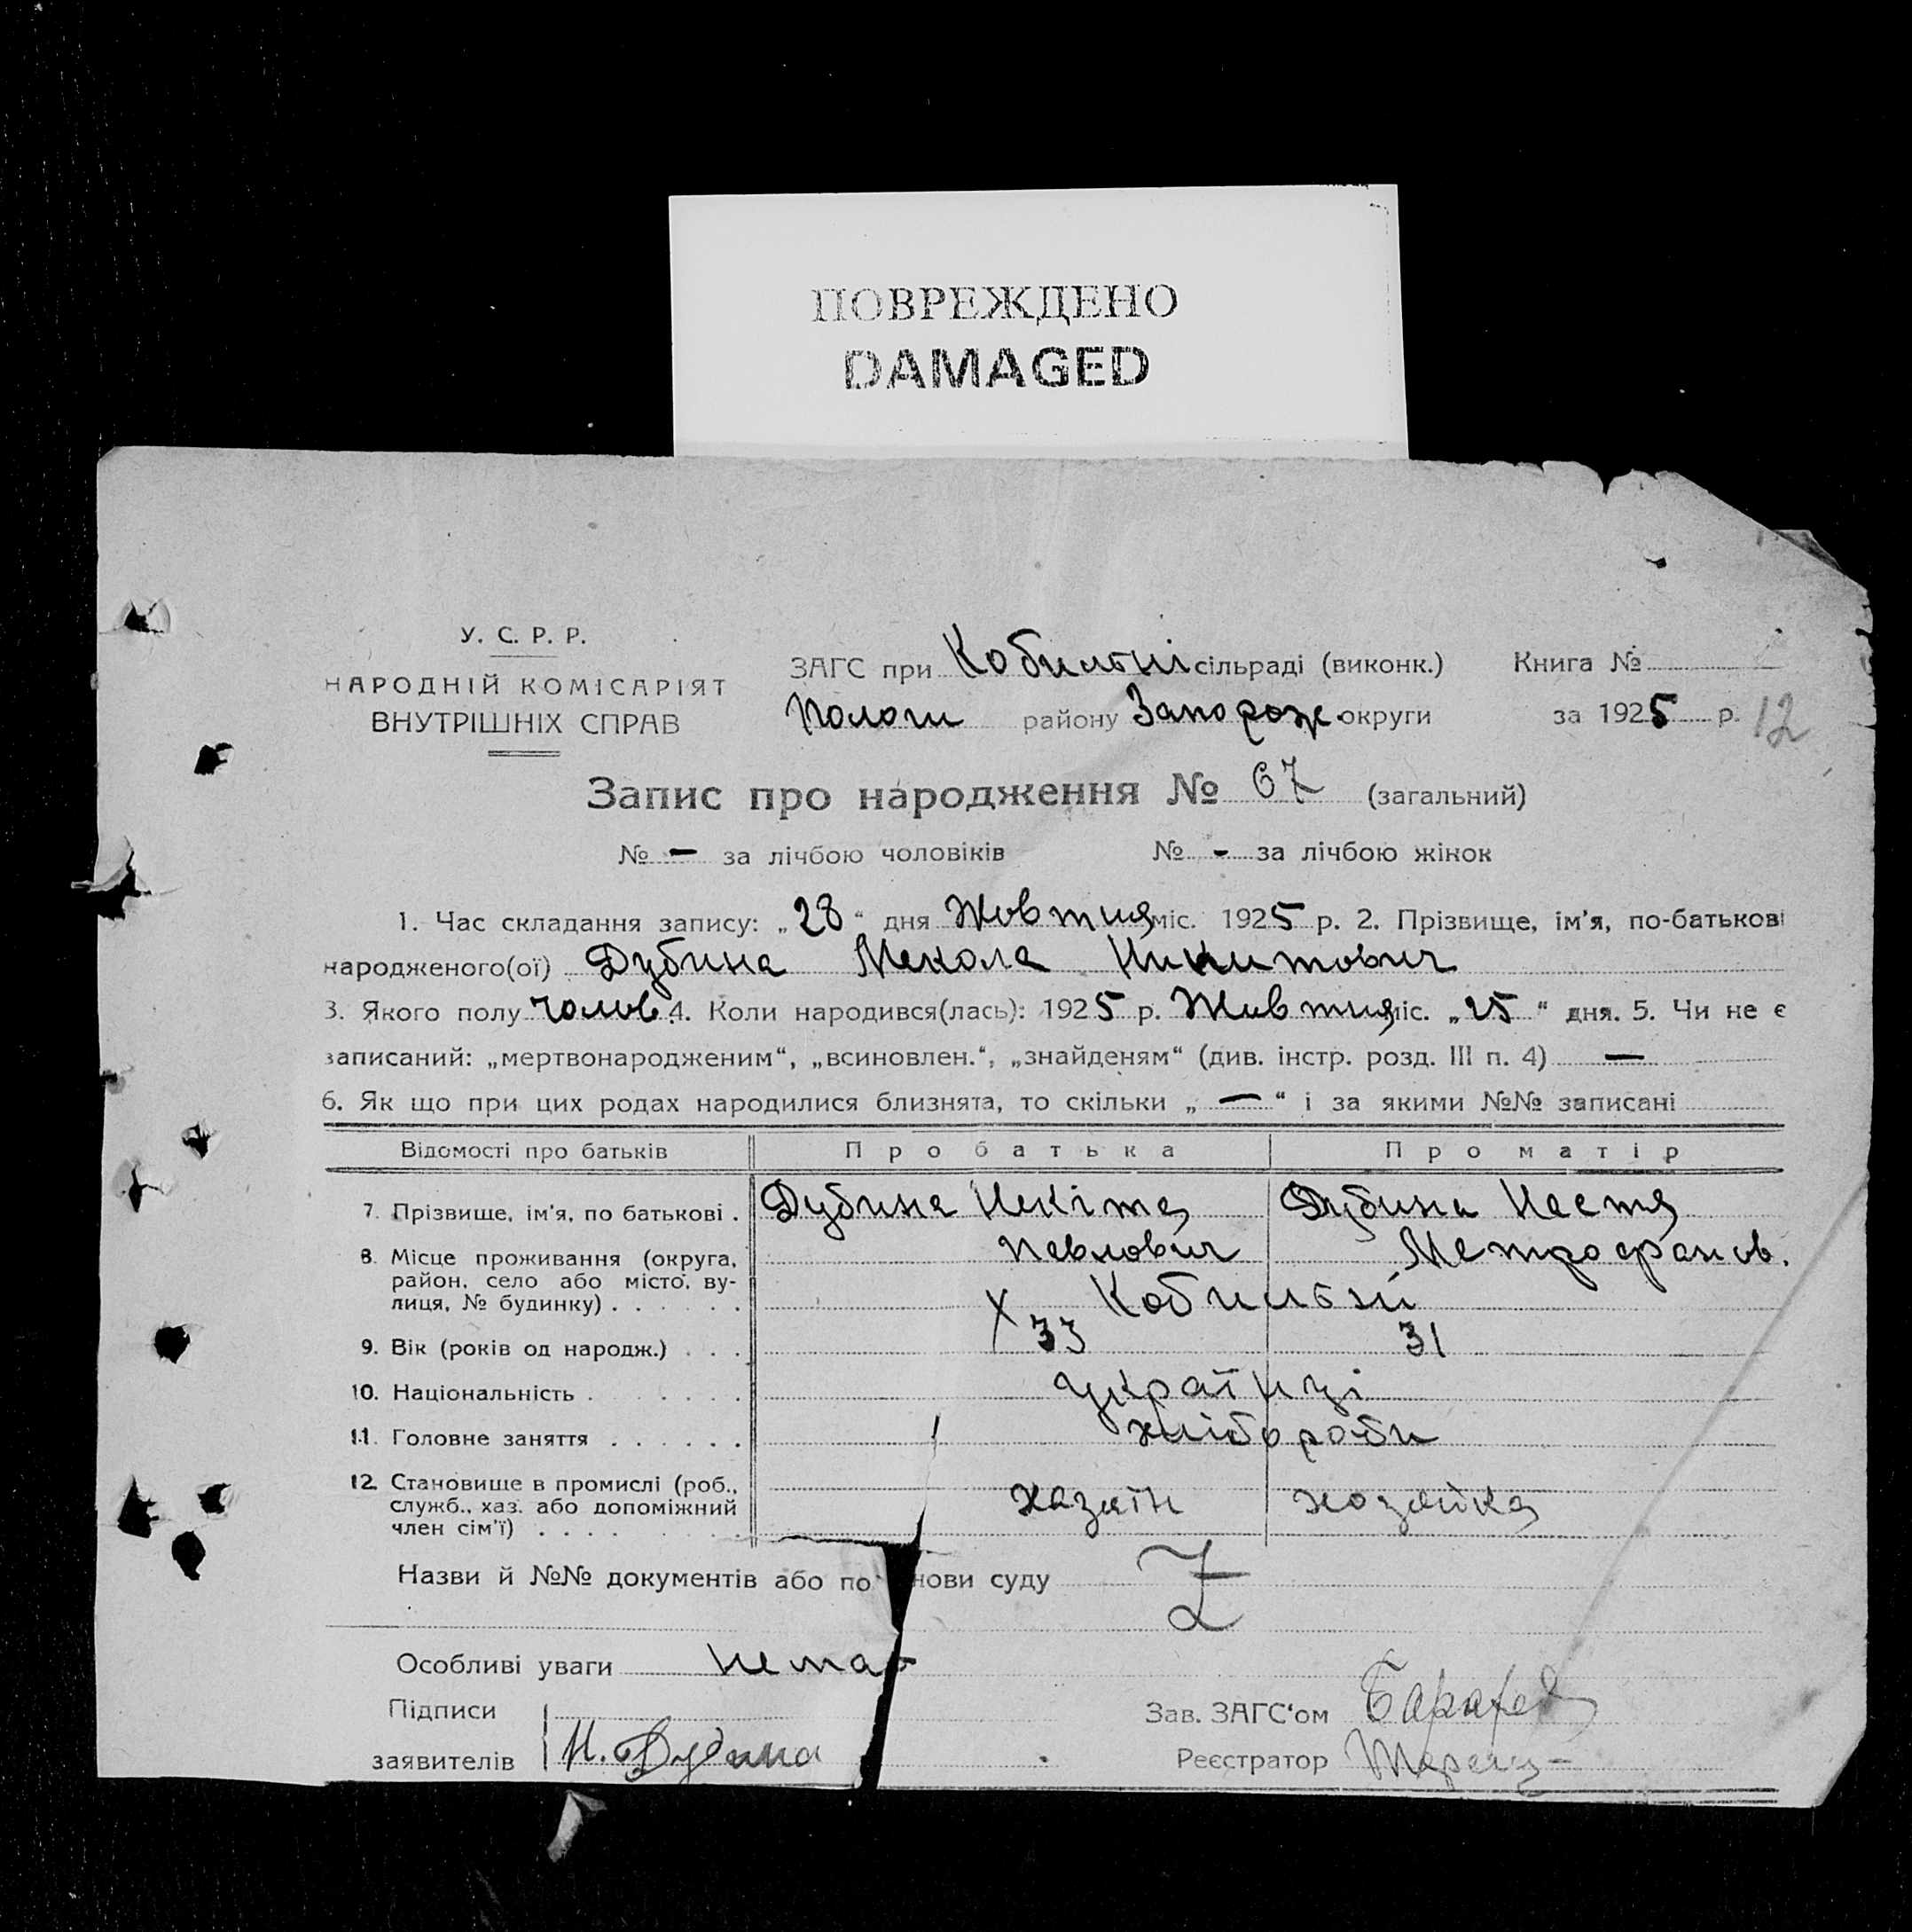 ПОВРЕЖДЕНО
DAMAGED
У. С. Р. Р.
НАРОДНІЙ КОМІСАРІЯТ
ВНУТРІШНІХ СПРАВ
ЗАГС при Кобильні сільраді (виконк.) Книга №
Пологи району Запорож. округи за 1925 р. 12
Запис про народження № 67 (загальний)
№ — за лічбою чоловіків № - за лічбою жінок
1. Час складання запису: „28“ дня Жовтня міс. 1925 р. 2. Прізвище, ім'я, по-батькові
народженого(ої) Дубина Мекола Никитович
3. Якого полу чолов. 4. Коли народився(лась): 1925 р. Жовтня міс. „25“ дня. 5. Чи не є
записаний: „мертвонародженим“, „всиновлен.“, „знайденям“ (див. інстр. розд. III п. 4) —
6. Як що при цих родах народилися близнята, то скільки „—“ і за якими №№ записані
Відомості про батьків Про батька Про матір
7. Прізвище, ім'я, по батькові . Дубина Некіта Дубина Настя
Павлович Метрофанов.
8. Місце проживання (округа,
район, село або місто, ву-
лиця, № будинку) . . . . . . Х Кобильні
9. Вік (років од народж.) . . . 33 31
10. Національність . . . . . . українці
11. Головне заняття . . . . . . хлібороби
12. Становище в промислі (роб.,
служб., хаз. або допоміжний
член сім'ї) . . . . хазяїн хозяйка
Назви й №№ документів або по нови суду Z
Особливі уваги Нема
Підписи
заявителів Н. Дубина
Зав. ЗАГС‘ом
Реєстратор